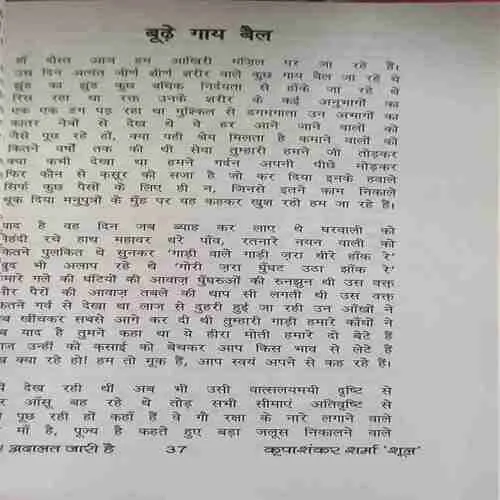 बूढ़े गाय बैल
हाँ दोस्त आज हम आखिरी मंज़िल पर जा रहे हैं।
उस दिन अत्यंत जीर्ण शीर्ण शरीर वाले कुछ गाय बैल जा रहे थे
झुंड का झुंड कुछ बधिक निर्दयता से हाँके जा रहे थे
रिस रहा था रक्त उनके शरीर के कई अनुभागों का
एक एक डग पड़ रहा था मुश्किल से डगमगाता उन अभागों का
कातर नेत्रों से देख थे वे हर आने जाने वालों को
जैसे पूछ रहे हों, क्या यही श्रेय मिलता है कमाने वालों को
कितने वर्षों तक की थी सेवा तुम्हारी हमने जी तोड़कर
क्या कभी देखा था हमने गर्दन अपनी पीछे मोड़कर
फिर कौन से कसूर की सजा है जो कर दिया इनके हवाले
सिर्फ कुछ पैसों के लिए ही न, जिनसे इतने काम निकाले
थूक दिया मनुपुत्रों के मुँह पर यह कहकर खुश रहो हम जा रहे हैं।
याद है वह दिन जब ब्याह कर लाए थे घरवाली को
मेहंदी रचे हाथ महावर धरे पाँव, रतनारे नयन वाली को
कितने पुलकित थे सुनकर 'गाड़ी वाले गाड़ी ज़रा धीरे हाँक रे'
खुद भी अलाप रहे थे 'गोरी ज़रा घुँघट उठा झाँक रे'
हमारे गले की घंटियों की आवाज़ घुँघरुओं की रुनझुन थी उस वक्त
और पैरों की आवाज़ तबले की थाप सी लगती थी उस वक्त
कितने गर्व से देखा था लाज से दुहरी हुई जा रही उन आँखों ने
जब खींचकर सबसे आगे कर दी थी तुम्हारी गाड़ी हमारे काँधों ने
याद है तुमने कहा था ये हीरा मोती हमारे दो बेटे हैं
आज उन्हीं को कसाई को बेचकर आप किस भाव से लेटे हैं
क्या रहे हो! हम तो मूक हैं, आप स्वयं अपने से कह रहे हैं।
देख रही थीं अब भी उसी वात्सल्यमयी दृष्टि से
आँसू बह रहे थे तोड़ सभी सीमाएं अतिवृष्टि से
पूछ रही हों कहाँ हैं वे गौ रक्षा के नारे लगाने वाले
माँ है, पूज्य है कहते हुए बड़ा जलूस निकालने वाले
अदालत जारी है 37 कृपाशंकर शर्मा 'शूल'